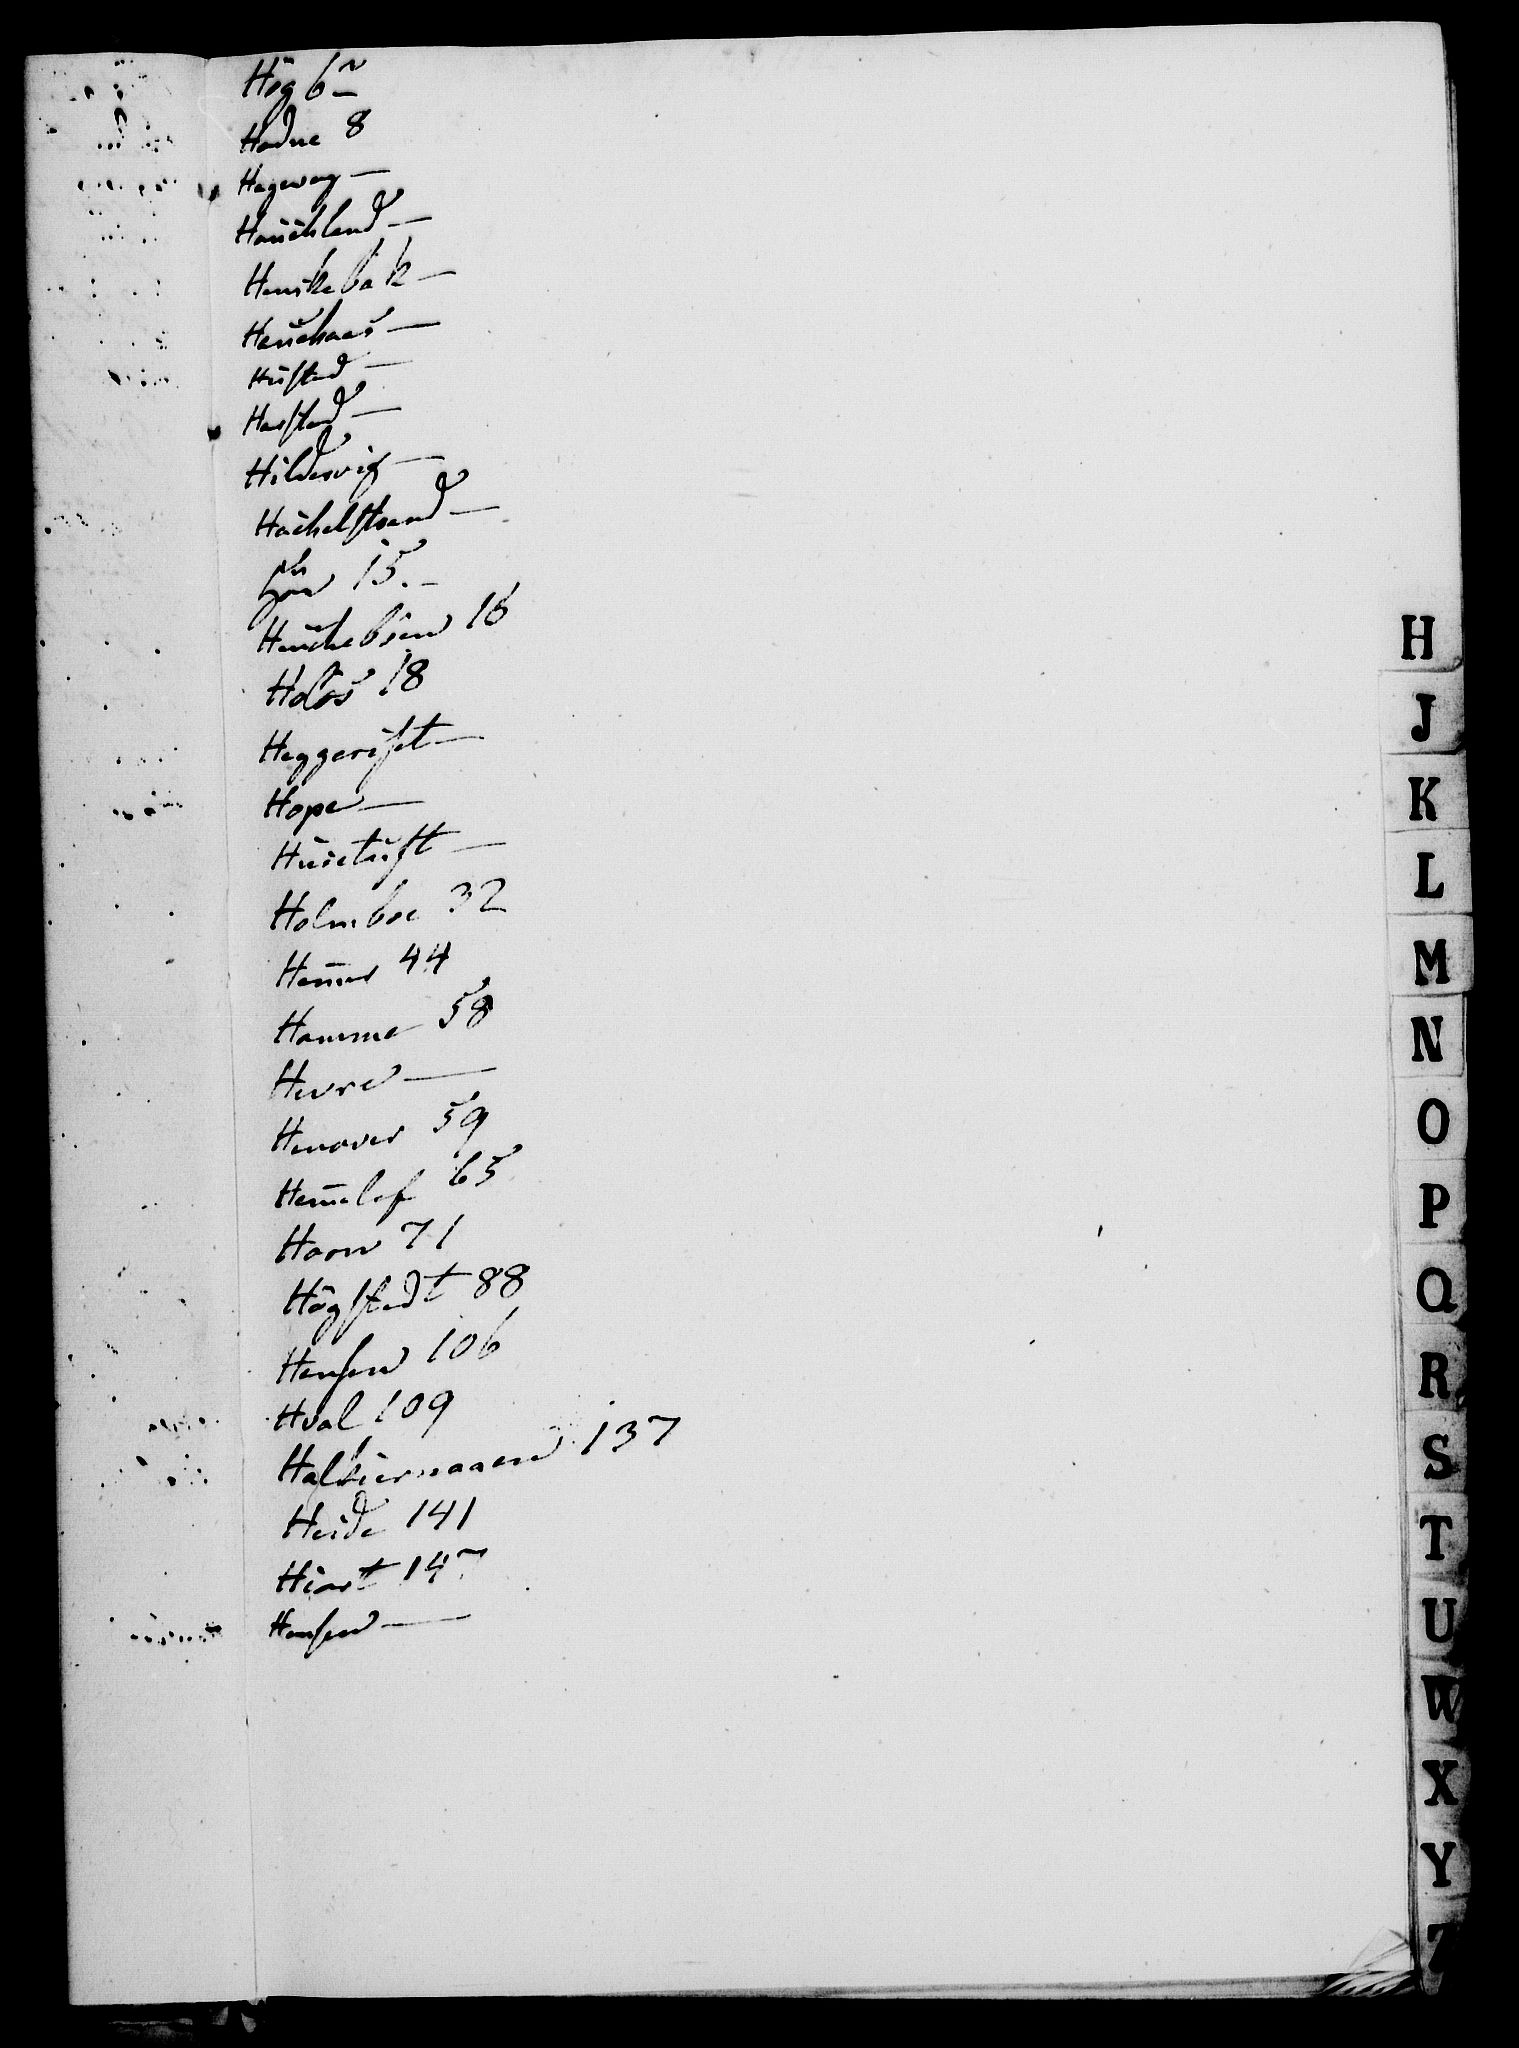 Hög 6
Hodne 8
Hageway —
Hauchland —
Henrikebak —
Hauchaas —
Hustad —
Hasstad —
Hildervig —
Hachelstrand —
15. —
Hauchebsen 16
Holos 18
Heggerift —
Hope —
Huistuft —
Holmboe 32
Hemer 44
Homme 58
Hevre —
Henover 59
Hemelef 65
Haarr 71
Högstedt 88
Hansen 106
Hval 109
Halkiernaaen 137
Heide 141
Hiort 147
Hansen —
H
J
K
L
M
N
O
P
Q
R
S
T
U
W
X
Y
Z